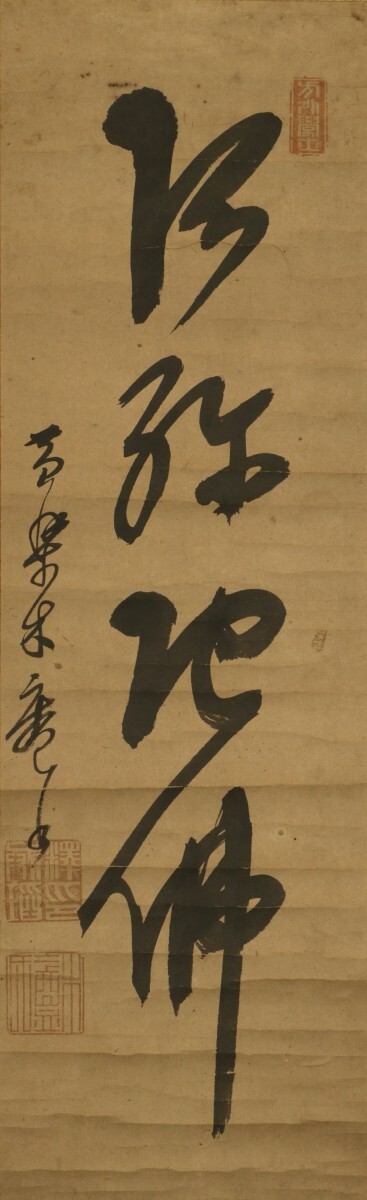 阿弥陀佛
黄檗木庵書